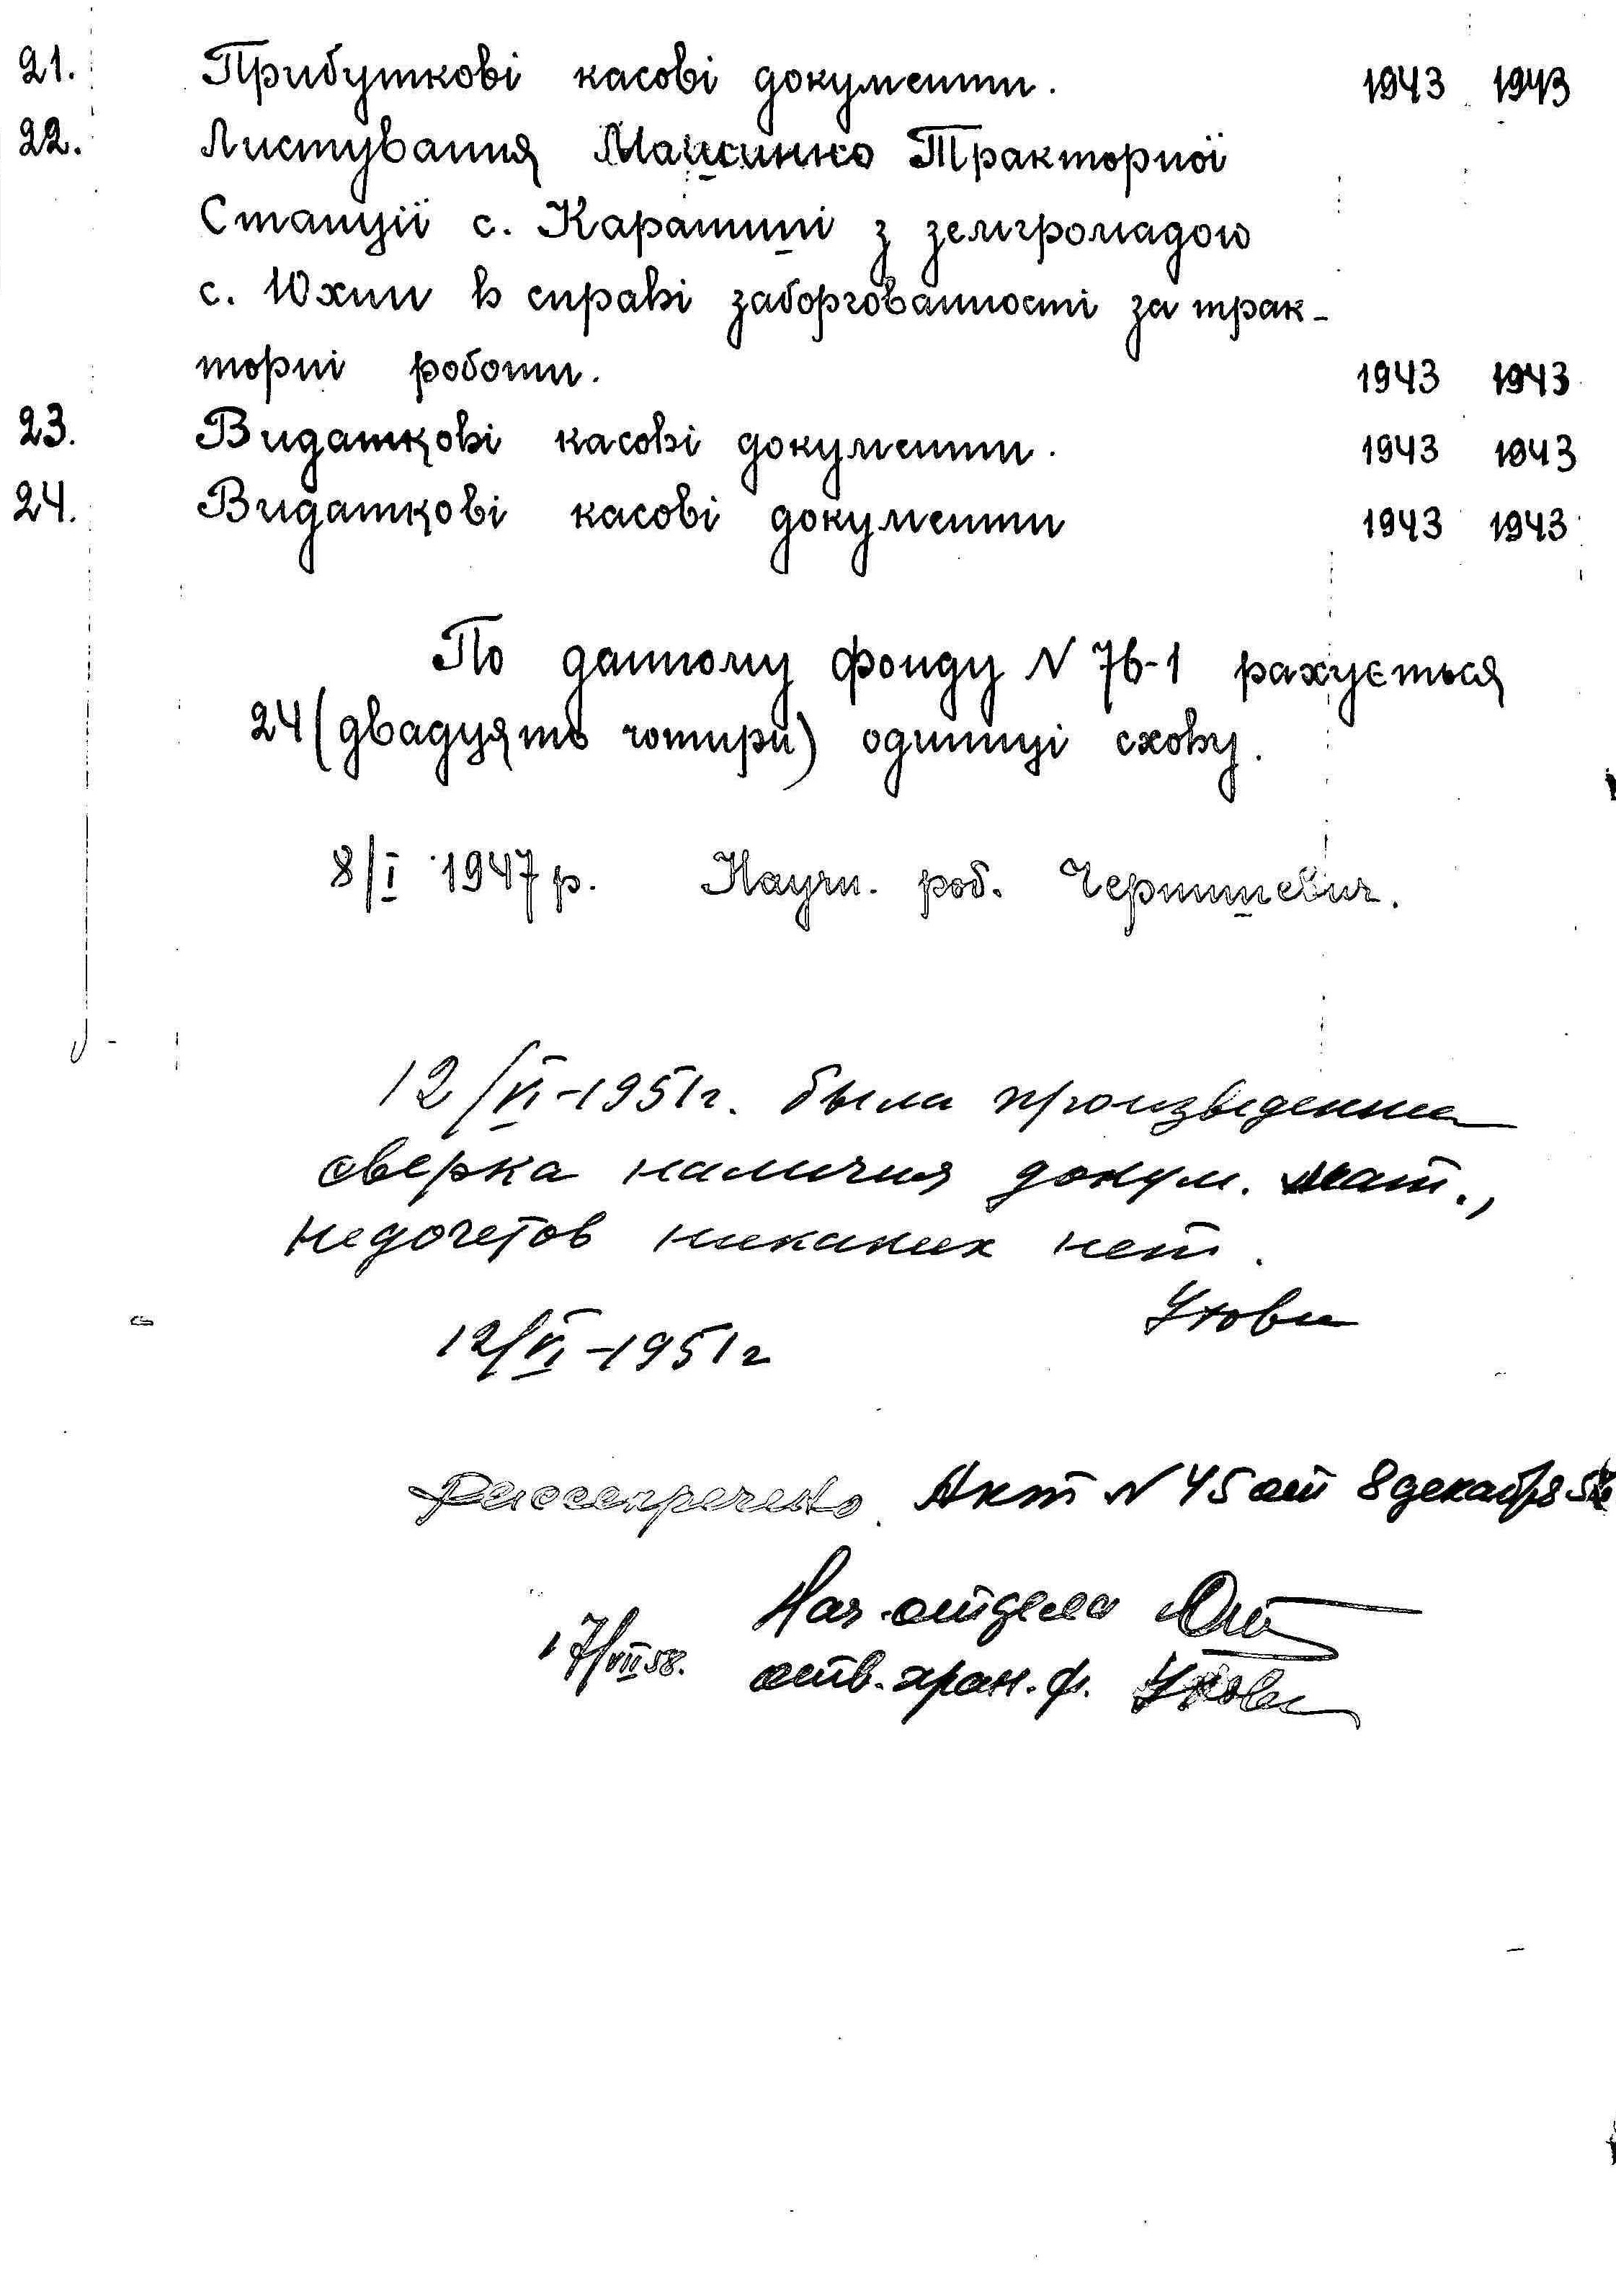 21. Прибуткові касові документи. 1943 1943
22. Листування Машинно Тракторної
Станції с. Карапиші з земгромадою
с. Юхни в справі заборгованности за трак-
торні роботи. 1943 1943
23. Видаткові касові документи. 1943 1943
24. Видаткові касові документи 1943 1943
По данному фонду N 76-1 рахується
24 (двадцять чотири) одиниці схову.
8/I 1947 р. Научн. роб. Чернишевич.
12/VI-1951г. была произведенна
сверка наличия докум. мат.,
недочетов никаких нет.
12/VI-1951г
Рассекречено. Акт N 45 от 8 декабря
Нач. отдела
17/VII 58. отв. хран. ф.